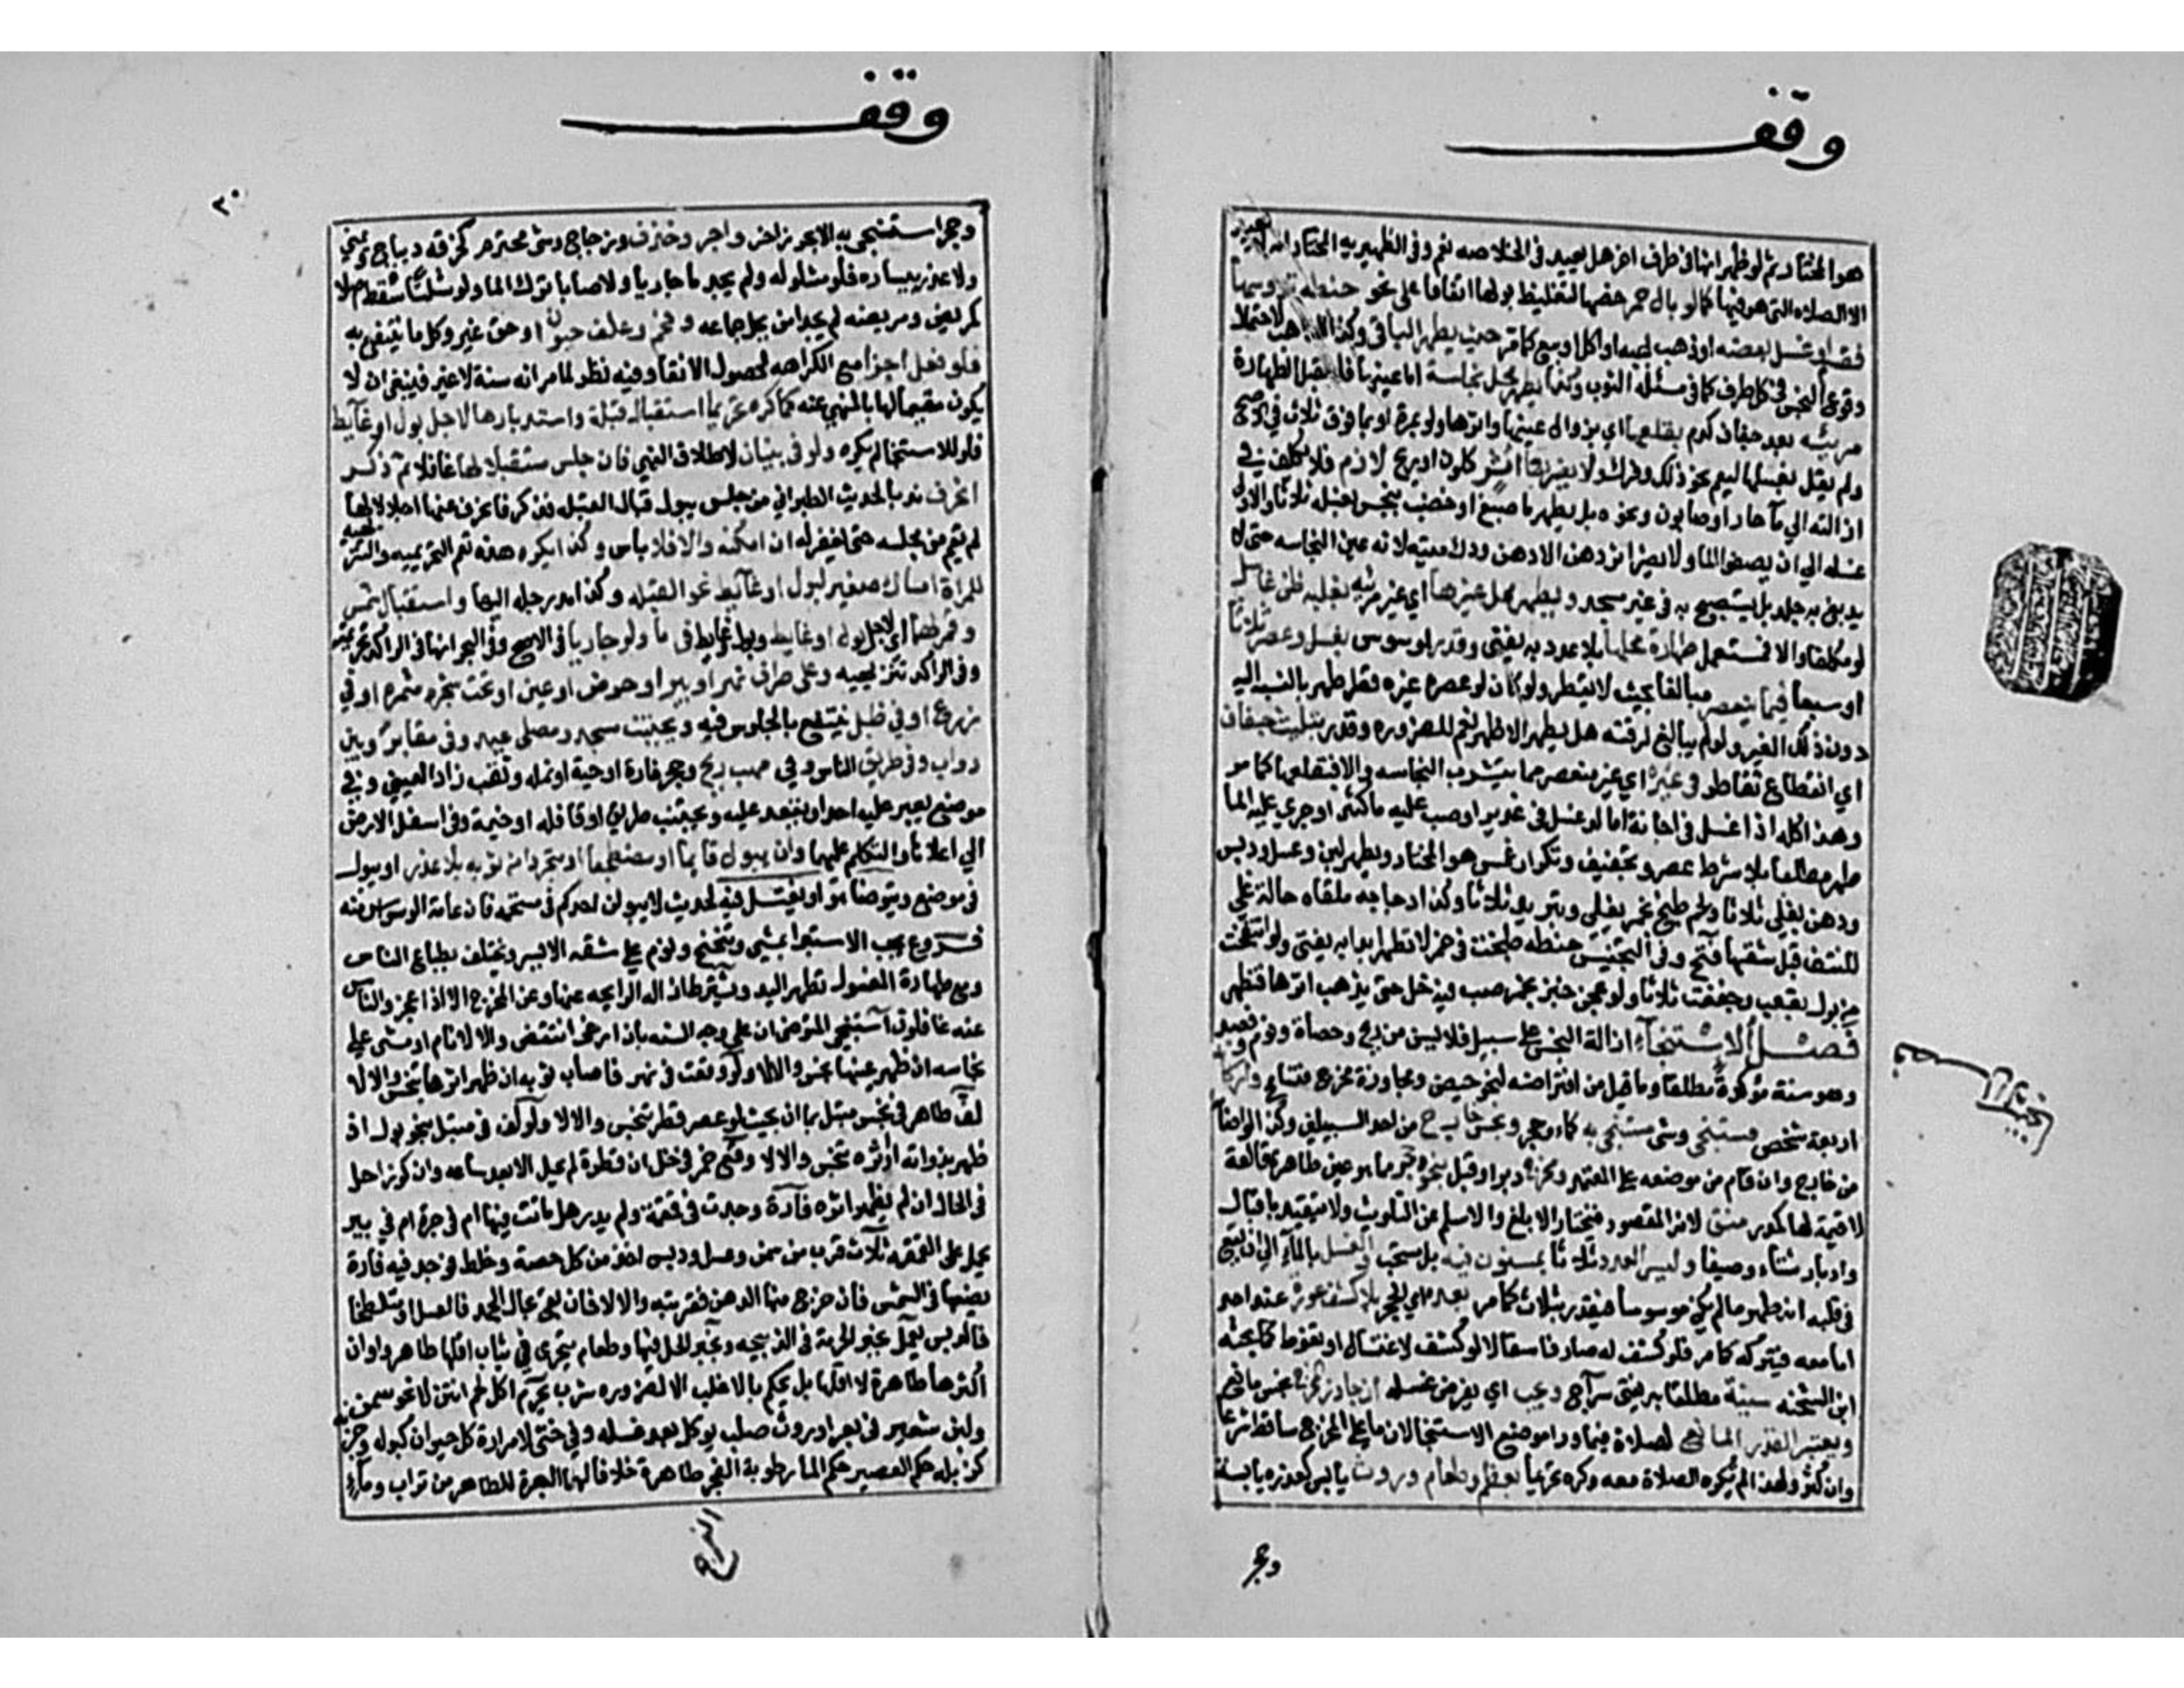 وقف
هو المختار ثم لو ظهر انها في طرف اخر هل يعيد في الخلاصه نعم وفي الظهيريه المختار انه لا يعيد
الا الصلاة التي هو فيها كما لو بال حمر خصها لتغليظ بولها اتفاقا على نحو حنطة تدوسها
فقسم او غسل بعضه او ذهب بهبة او اكل او بيع كما مر حيث يطهر الباقي وكذا الذاهب لاحتمال
وقوع النجس في كل طرف كما في مسئلة الثوب وكذا يطهر محل نجاسة اما عينها فلا تقبل الطهارة
مرئيه بعد جفاف كدم بقلعها اي بزوال عينها واثرها ولو بمرة او بما فوق ثلاث في الاصح
ولم يقل بغسلها ليعم نحو ذلك وفرك ولا يضر بقاء اثر كلون او ريح لازم فلا يكلف في
ازالته الي ماء حار او صابون ونحوه بل يطهر ما صبغ او خضب بنجس بغسله ثلاثا والاولى
غسله الي ان يصفو الماء ولا يضر اثر دهن الا دهن ودك ميتة لانه عين النجاسه حتى لا
يدبغ به جلد بل يستصبح به في غير مسجد ويطهر محل غيرها اي غير مرئية بغلبة ظن غاسل
لو مكلفا والا فمستعمل طهارة محلها بلا عدد به يفتى وقدر لموسوس بغسل وعصر ثلاثا
او سبعا فيما ينعصر مبالغا بحيث لا يقطر ولو كان لو عصره غيره قطر طهر بالنسبة اليه
دون ذلك الغير ولو لم يبالغ لرقته هل يطهر الاظهر نعم للضرورة وقدر بتثليث جفاف
اي انقطاع تقاطر في غيره اي غير منعصر مما يتشرب النجاسه والا فبقلعها كما مر
وهذا كله اذا غسل في اجانة اما لو غسل في غدير او صب عليه ماء كثير او جري عليه الماء
طهر مطلقا بلا شرط عصر وتجفيف وتكرار غمس هو المختار ويطهر لبن وعسل ودبس
ودهن يغلى ثلاثا ولحم طبخ بخمر يغلى ويبرد ثلاثا وكذا دجاجة ملقاة حالة غلي
للنتف قبل شقها فتح وفي التجنيس حنطه طبخت في خمر لا تطهر ابدا به يفتى ولو انتفخت
من بول نقعت وجففت ثلاثا ولو عجن خبز بخمر صب فيه خل حتى يذهب اثرها فيطهر
فصل الاستنجاء ازالة النجس عن سبيل فلا يسن من ريح وحصاة ونوم وفصد
وهو سنة مؤكدة مطلقا وما قيل من افتراضه لنحو حيض ومجاوزة مخرج فتسامح واركانه
اربعة شخص مستنج وشئ مستنجي به كماء وحجر ونجس خارج من احد السبيلين وكذا لو اصابه
من خارج وان قام من موضعه على المعتمد ومخرج دبر او قبل بنحو حجر مما هو عين طاهرة قالعة
لا قيمة لها كمدر منق لانه المقصود فيختار الابلغ والاسلم عن التلويث ولا يتقيد باقبال
وادبار شتاء وصيفا وليس العدد ثلاثا بمسنون فيه بل مستحب والغسل بالماء الي ان يقع
في قلبه انه طهر ما لم يكن موسوسا فيقدر بثلاث كما مر بعده اي الحجر بلا كشف عورة عند احد
اما معه فيتركه كما مر فلو كشف له صار فاسقا لا لو كشف لاغتسال او تغوط كما بحثه
ابن الشحنه سنة مطلقا به يفتى سراج ويجب اي يفرض غسله ان جاوز المخرج نجس مانع
ويعتبر القدر المانع لصلاة فيما وراء موضع الاستنجا لان ما على المخرج ساقط شرعا
وان كثر ولهذا لم تكره الصلاة معه وكره تحريما بعظم وطعام وروث يابس كعذرة يابسة
وحجر
وقف
٣٠
وحجر استنجي به الا بحرف اخر واجر وخزف وزجاج وشئ محترم كخرقه ديباج ويمين
ولا عذر بيساره فلو مشلولة ولم يجد ماء جاريا ولا صابا ترك الماء ولو شلتا سقط اصلا
كمريض ومريضه لم يجدا من يحل جماعه وفحم وعلف حيوان وحق غير وكل ما ينتفع به
فلو فعل اجزا مع الكراهه لحصول الانقاء وفيه نظر لما مر انه سنة لا غير فينبغي ان لا
يكون مقيما لها بالمنهي عنه كما كره تحريما استقبال قبلة واستدبارها لاجل بول او غائط
فلو للاستنجا لم يكره ولو في بنيان لاطلاق النهي فان جلس مستقبلا لها غافلا ثم ذكر
انحرف ندبا لحديث الطبراني من جلس يبول قبال القبلة فذكر فانحرف عنها اجلالا لها
لم يقم من مجلسه حتى يغفر له ان امكنه والا فلا باس وكذا يكره هذه تعم التحريميه والتنزيهيه
للمراة امساك صغير لبول او غائط نحو القبلة وكذا مد رجله اليها واستقبال شمس
وقمر لهما اي لاجل بول او غايط وبول وغايط في ماء ولو جاريا في الاصح وفي البحر انها في الراكد تحريميه
وفي الراكد تنزيهيه وعلى طرف نهر او بير او حوض او عين او تحت شجرة مثمرة او في
زرع او في ظل ينتفع بالجلوس فيه وبجنب مسجد ومصلى عيد وفي مقابر وبين
دواب وفي طريق الناس وفي مهب ريح وجحر فارة او حية او نمله وثقب زاد العيني وفي
موضع يعبر عليه احد او يقعد عليه وبجنب طريق او قافله او خيمة وفي اسفل الارض
الي اعلاها والتكلم عليهما وان يبول قايما او مضطجعا او متجردا من ثوبه بلا عذر او يبول
في موضع ويتوضا هو او يغتسل فيه لحديث لا يبولن احدكم في مستحمه فان عامة الوسواس منه
فروع يجب الاستبرا بمشي وتنحنح ونوم على شقه الايسر ويختلف بطباع الناس
ومع طهارة المغسول تطهر اليد ويشترط ازالة الرايحه عنها وعن المخرج الا اذا عجز والناس
عنه غافلون استنجى المتوضئ ان على وجه السنه بان ارخى انتقض والا لا نام او مشى على
نجاسه ان ظهر عينها تنجس والا لا ولو وقعت في نهر فاصاب ثوبه ان ظهر اثرها تنجس والا لا
لف طاهر في نجس مبتل بماء ان بحيث لو عصر قطر تنجس والا لا ولو لف في مبتل بنحو بول ان
ظهر نداوته او اثره تنجس والا لا وقع خمر في خل ان قطرة لم يحل الا بعد ساعه وان كوز احل
في الحال ان لم يظهر اثره فارة وجدت في قمقمة ولم يدر هل ماتت فيها ام في جرة ام في بير
يحمل على القمقمه ثلاث قرب من سمن وعسل ودبس اخذ من كل حصة وخلط فوجد فيه فارة
يضعها في الشمس فان خرج منها الدهن فقربته والا لا فان بقي بحال الجمد فالعسل او متلطخا
فالدبس يعمل بخبر الحرمة في الذبيحه وبخبر الحل في ماء وطعام يتحرى في ثياب اقلها طاهر واوان
اكثرها طاهرة لا اقلها بل يحكم بالاغلب الا لضرورة شرب يحرم اكل لحم انتن لا نحو سمن
ولبن شعير في بعر او روث صلب يوكل بعد غسله وفي خثى لا مرارة كل حيوان كبوله وجرته
كزبله حكم العصير حكم الماء رطوبة الفرج طاهرة خلافا لهما العبرة للطاهر من تراب وماء